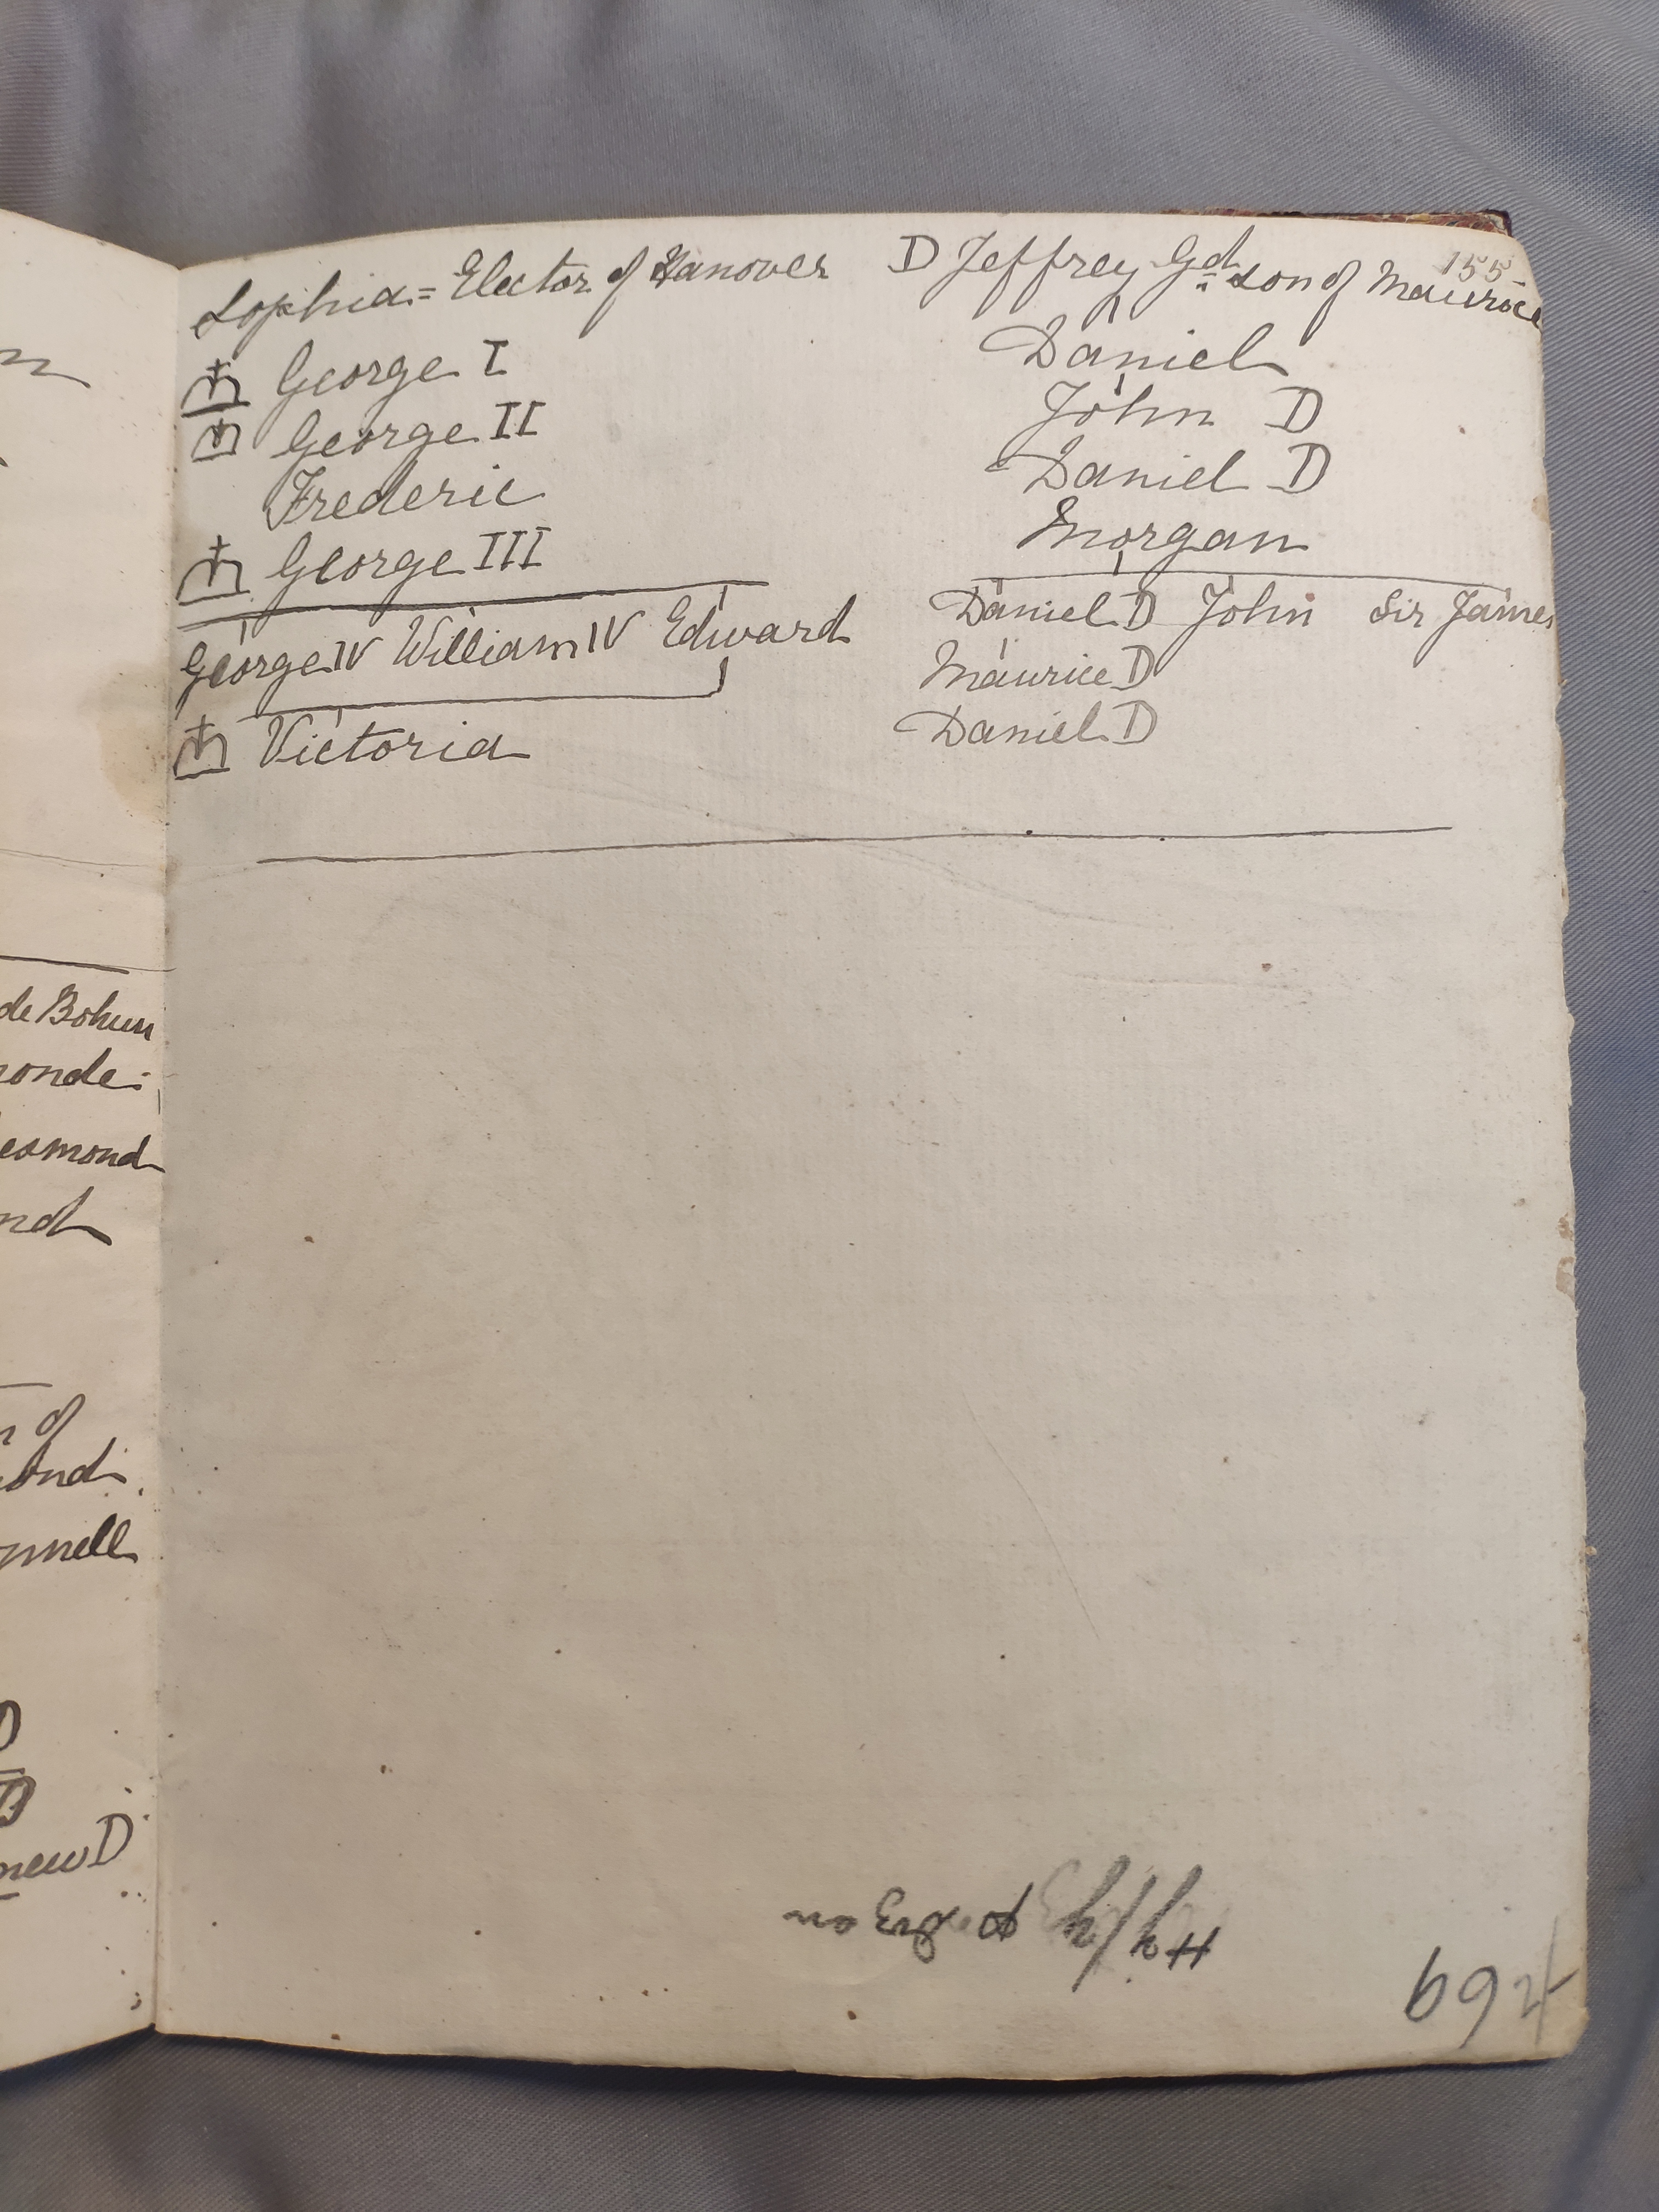 155
Sophia = Elector of Hanover
George I
George II
Frederic
George III
George IV William IV Edward
Victoria
D Jeffrey Gd son of Maurice
Daniel
John D
Daniel D
Morgan
Daniel D John Sir James
Maurice D
Daniel D
de Bohun
onde:
esmond
nd
of
ond
nnell
D
new D